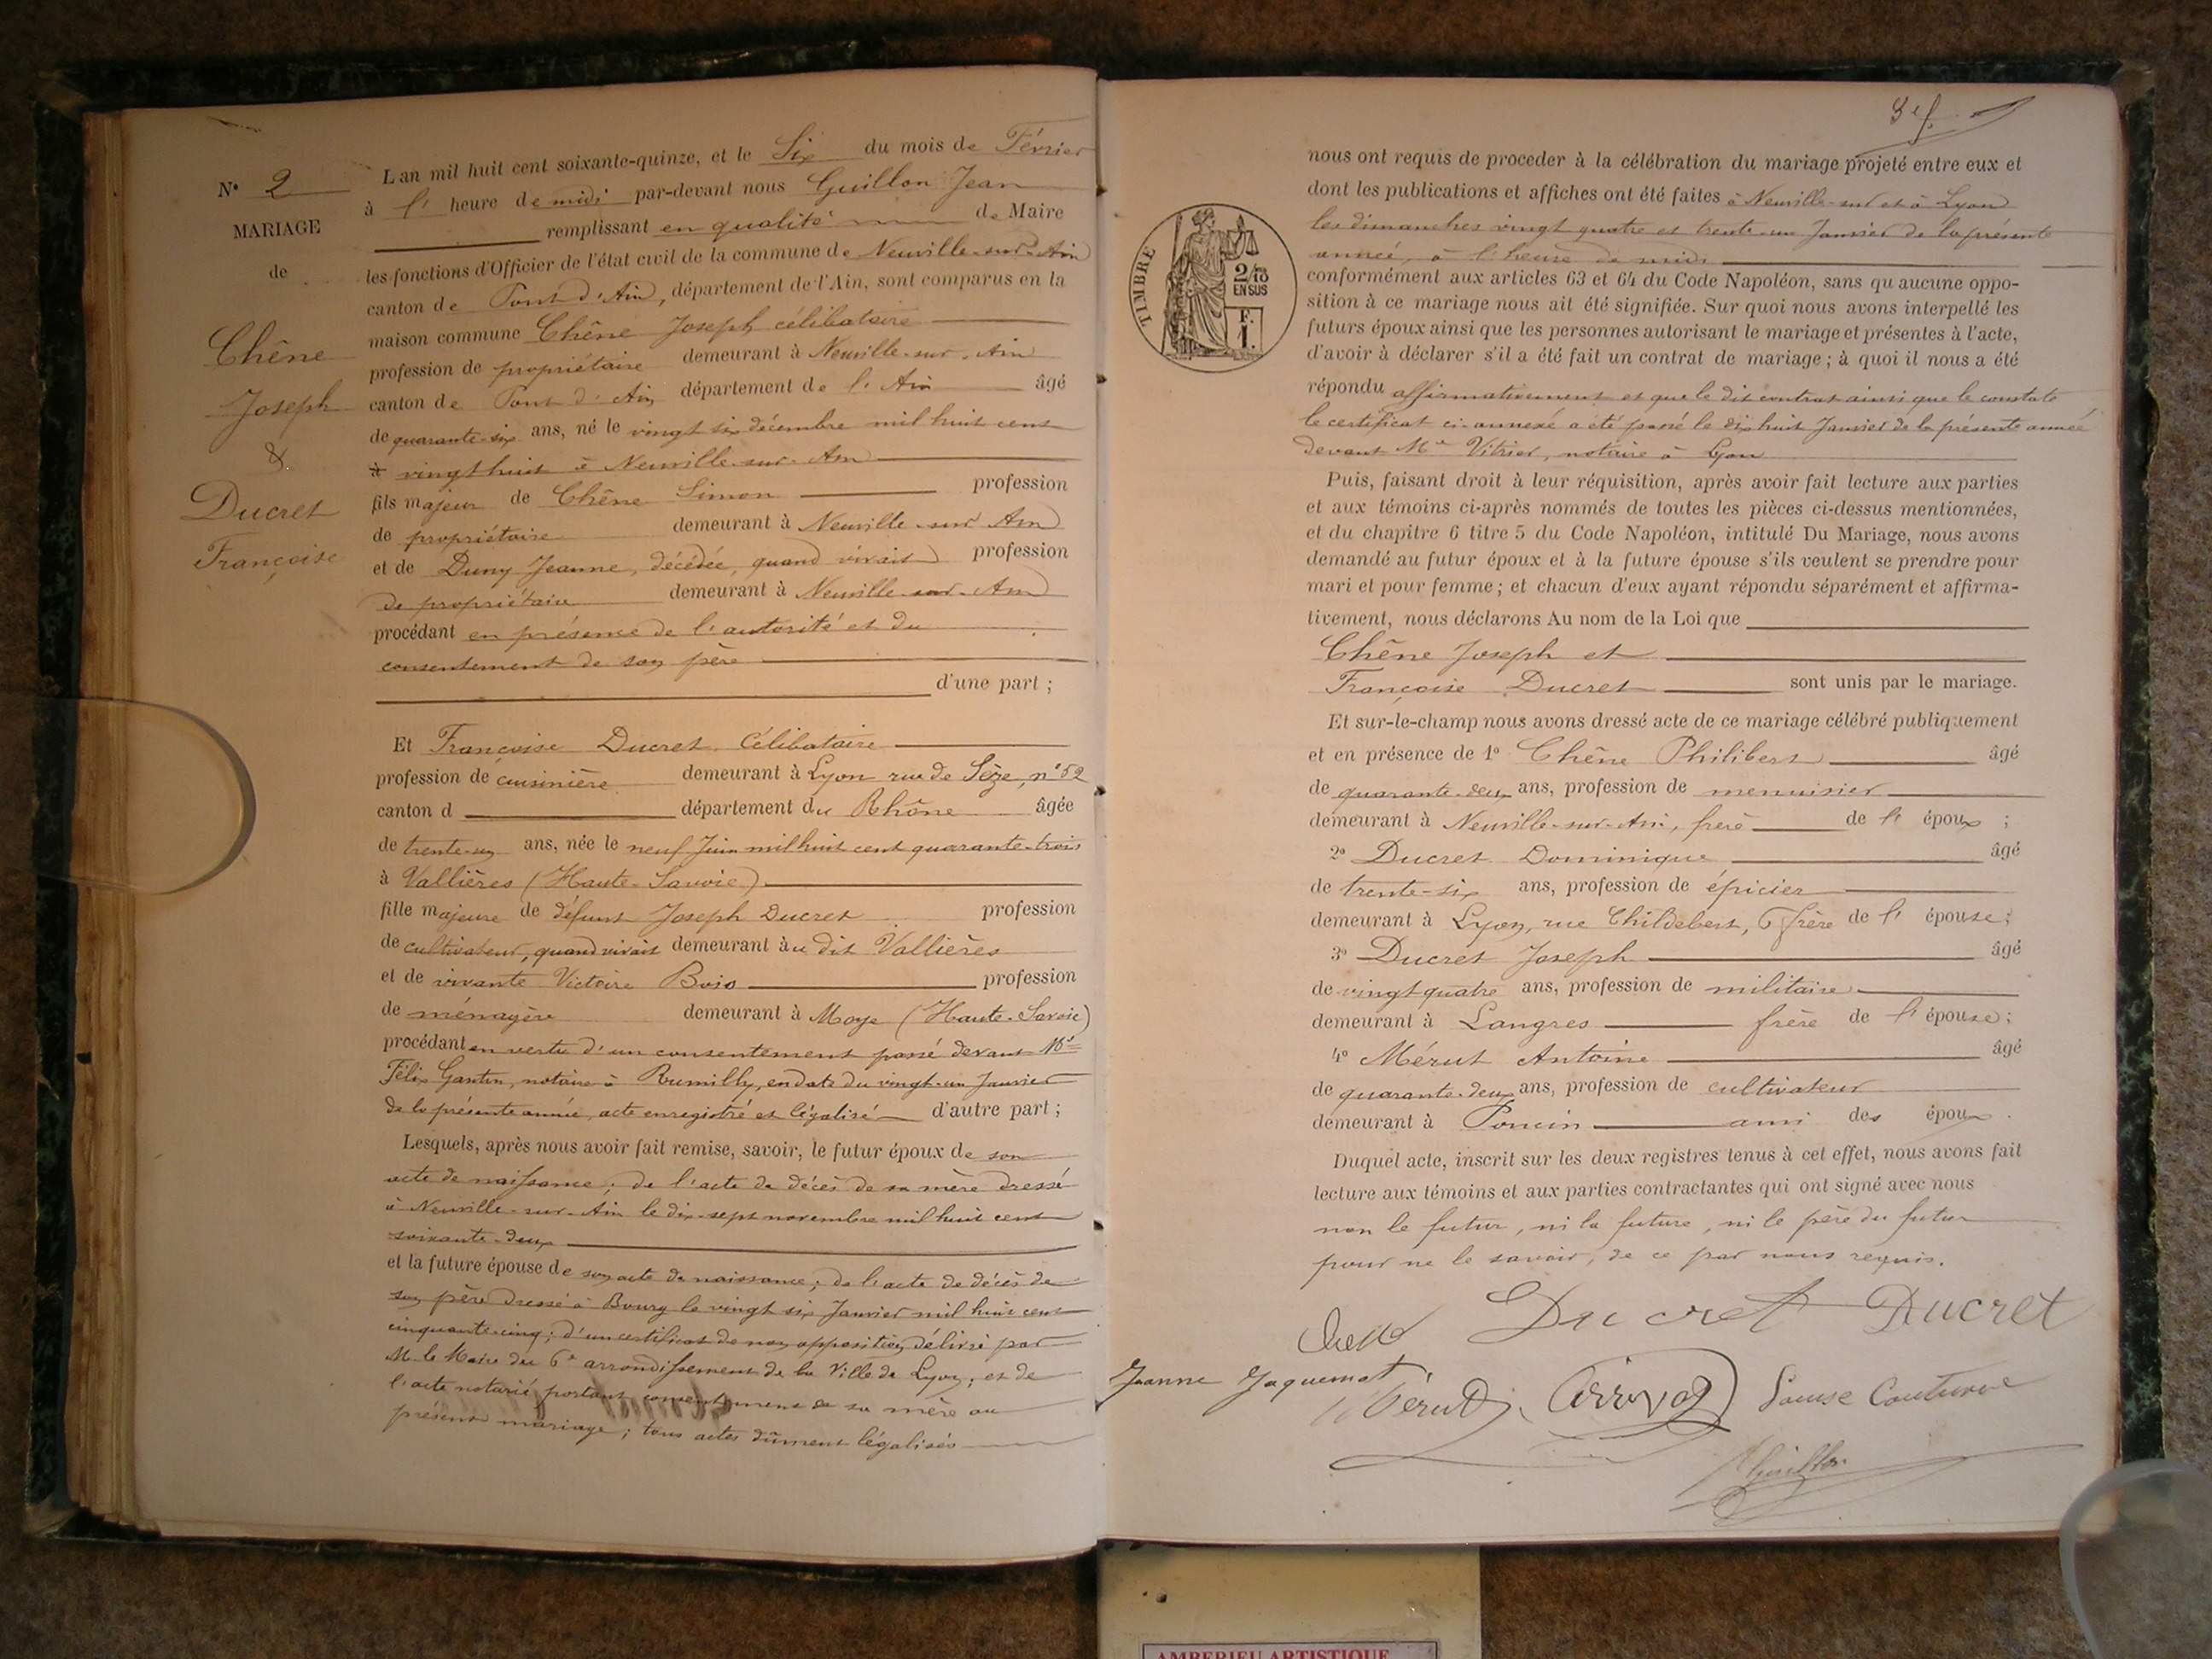 N° 2
MARIAGE
de
Chêne
Joseph
&
Ducret
Françoise
L'an mil huit cent soixante-quinze, et le Six du mois de Février
à l' heure de midi par-devant nous Guillon Jean
remplissant en qualité de Maire
les fonctions d'Officier de l'état civil de la commune de Neuville-sur-Ain
canton de Pont d'Ain, département de l'Ain, sont comparus en la
maison commune Chêne Joseph célibataire
profession de propriétaire demeurant à Neuville-sur-Ain
canton de Pont d'Ain département de l'Ain âgé
de quarante-six ans, né le vingt six décembre mil huit cent
à vingt huit à Neuville-sur-Ain
fils majeur de Chêne Simon profession
de propriétaire demeurant à Neuville-sur-Ain
et de Duny Jeanne, décédée, quand vivait profession
de propriétaire demeurant à Neuville-sur-Ain
procédant en présence de l'autorité et du
consentement de son père
d'une part ;
Et Françoise Ducret célibataire
profession de cuisinière demeurant à Lyon rue de Sèze, n° 52
canton d département du Rhône âgée
de trente-un ans, née le neuf Juin mil huit cent quarante-trois
à Vallières (Haute-Savoie)
fille majeure de défunt Joseph Ducret profession
de cultivateur, quand vivait demeurant à u dit Vallières
et de vivante Victoire Bois profession
de ménagère demeurant à Moye (Haute-Savoie)
procédant en vertu d'un consentement passé devant Me
Félix Gantin, notaire à Rumilly, en date du vingt-un Janvier
de la présente année, acte enregistré et légalisé d'autre part ;
Lesquels, après nous avoir fait remise, savoir, le futur époux de son
acte de naissance ; de l'acte de décès de sa mère dressé
à Neuville-sur-Ain le dix-sept novembre mil huit cent
soixante-deux
et la future épouse de son acte de naissance ; de l'acte de décès de
son père dressé à Bourg le vingt six Janvier mil huit cent
cinquante-cinq ; d'un certificat de non opposition délivré par
M. le Maire du 6e arrondissement de la Ville de Lyon, et de
l'acte notarié portant consentement de sa mère au
présent mariage ; tous actes dûment légalisés
TIMBRE
2/10
EN SUS
F.
1.
nous ont requis de proceder à la célébration du mariage projeté entre eux et
dont les publications et affiches ont été faites à Neuville-sur et à Lyon
les dimanches vingt quatre et trente-un Janvier de la présente
année, à l'heure de midi
conformément aux articles 63 et 64 du Code Napoléon, sans qu'aucune oppo-
sition à ce mariage nous ait été signifiée. Sur quoi nous avons interpellé les
futurs époux ainsi que les personnes autorisant le mariage et présentes à l'acte,
d'avoir à déclarer s'il a été fait un contrat de mariage ; à quoi il nous a été
répondu affirmativement et que le dit contrat ainsi que le constate
le certificat ci-annexé a été passé le dix huit Janvier de la présente année
devant Me Vitrier, notaire à Lyon
Puis, faisant droit à leur réquisition, après avoir fait lecture aux parties
et aux témoins ci-après nommés de toutes les pièces ci-dessus mentionnées,
et du chapitre 6 titre 5 du Code Napoléon, intitulé Du Mariage, nous avons
demandé au futur époux et à la future épouse s'ils veulent se prendre pour
mari et pour femme ; et chacun d'eux ayant répondu séparément et affirma-
tivement, nous déclarons Au nom de la Loi que
Chêne Joseph et
Françoise Ducret sont unis par le mariage.
Et sur-le-champ nous avons dressé acte de ce mariage célébré publiquement
et en présence de 1° Chêne Philibert âgé
de quarante-deux ans, profession de menuisier
demeurant à Neuville-sur-Ain, frère de l' époux ;
2° Ducret Dominique âgé
de trente-six ans, profession de épicier
demeurant à Lyon, rue Childebert, 6 frère de l' épouse ;
3° Ducret Joseph âgé
de vingt quatre ans, profession de militaire
demeurant à Langres frère de l' épouse ;
4° Mérut Antoine âgé
de quarante-deux ans, profession de cultivateur
demeurant à Poncin ami des époux.
Duquel acte, inscrit sur les deux registres tenus à cet effet, nous avons fait
lecture aux témoins et aux parties contractantes qui ont signé avec nous
non le futur, ni la future, ni le père du futur
pour ne le savoir, de ce par nous requis.
Ducret Ducret
Jeanne Jaquemet
Mérut Arrivoz Louise Couturier
Guillon
AMBERIEU ARTISTIQUE